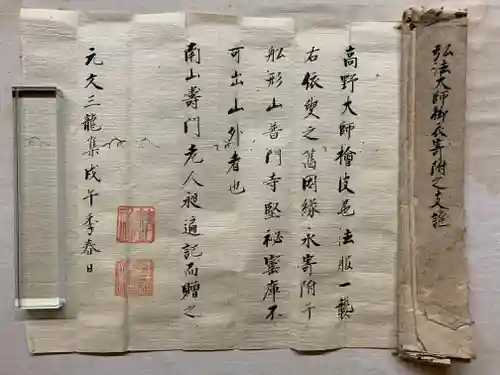 弘法大師御衣寄附之支證
高野大師檜皮色法服一襲
右依叟之舊因縁永寄附于
船形山普門寺堅祕蜜庫不
可出山外者也
南山壽門老人
記而贈之
元文三龍集戊午季春日